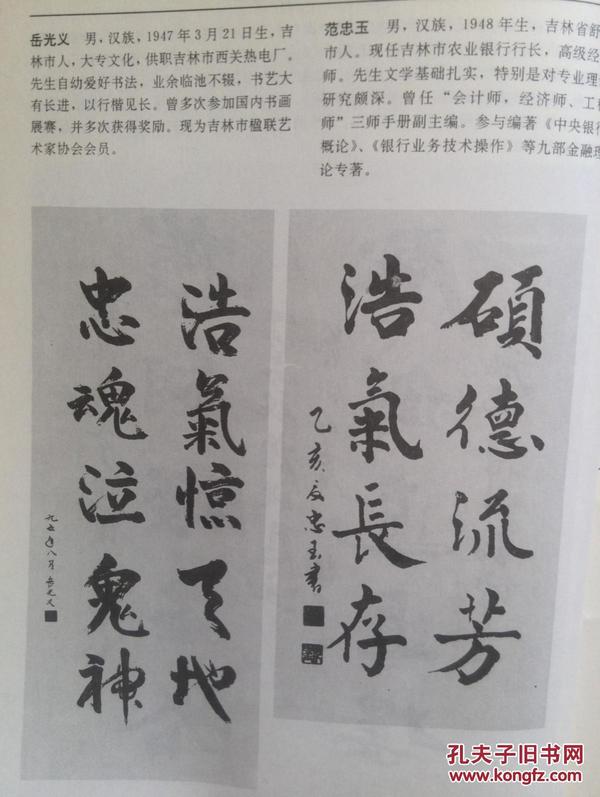 岳光义 男，汉族，1947年3月21日生，吉
林市人，大专文化，供职吉林市西关热电厂。
先生自幼爱好书法，业余临池不辍，书艺大
有长进，以行楷见长。曾多次参加国内书画
展赛，并多次获得奖励。现为吉林市楹联艺
术家协会会员。
范忠玉 男，汉族，1948年生，吉林省舒
市人。现任吉林市农业银行行长，高级经
师。先生文学基础扎实，特别是对专业理
研究颇深。曾任“会计师，经济师、工程
师”三师手册副主编。参与编著《中央银行
概论》、《银行业务技术操作》等九部金融理
论专著。
浩氣惊天地
忠魂泣鬼神
九五年八月岳光义
碩德流芳
浩氣長存
乙亥夏忠玉書
孔夫子旧书网
www.kongfz.com